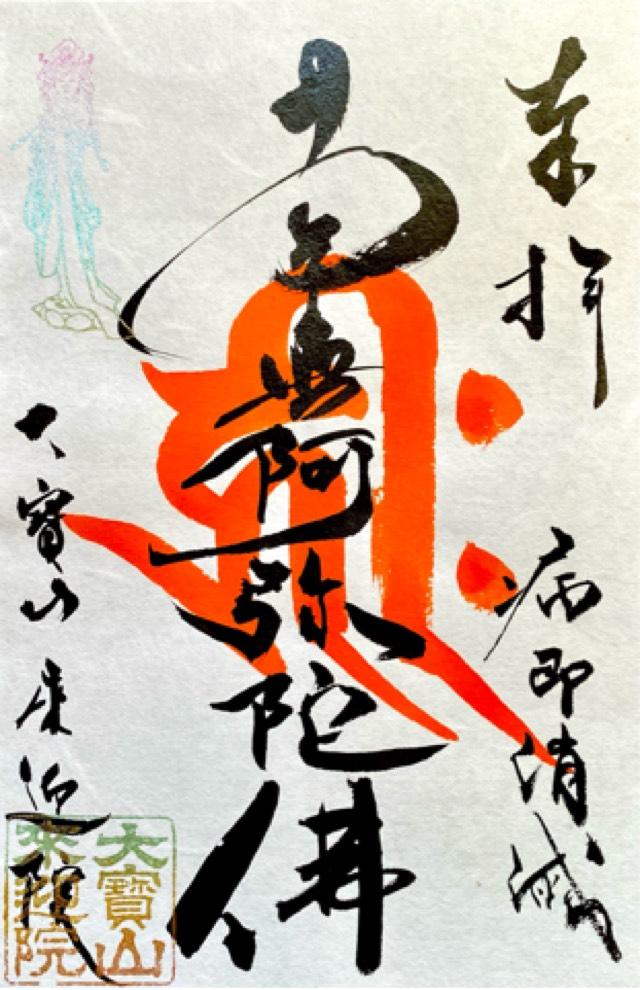 奉拝
病即消滅
南無阿弥陀佛
大寳山 来迎院
大寶山
來迎院